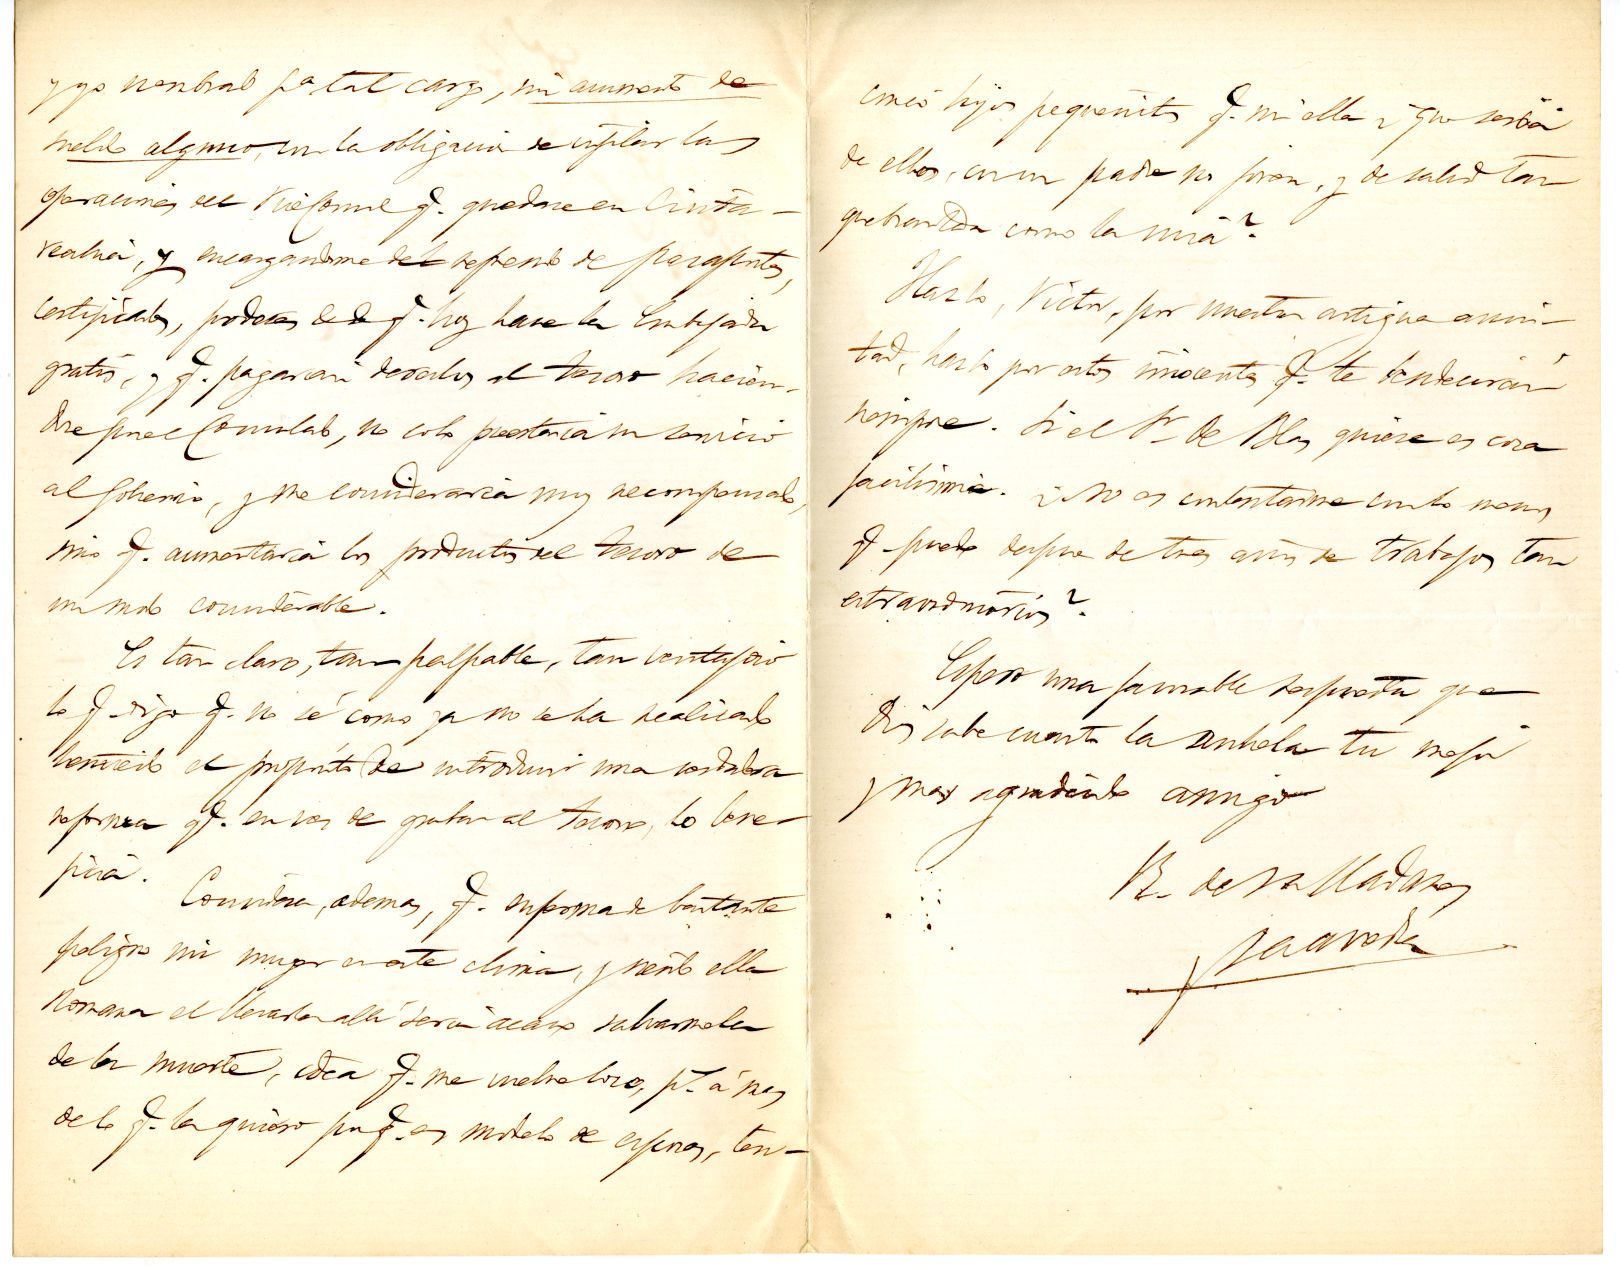 y yo nombrado pa. tal cargo, sin aumento de
sueldo alguno, con la obligacion de vigilar las
operaciones del ViceConsul q. quedase en Civita-
vechia, y encargandome del despacho de pasaportes,
certificados, poderes &a &a q. hoy hace la Embajada
gratis, y q. pagarian derechos al tesoro hacien-
dose por el Consulado, no solo prestaria un servicio
al Gobierno, y me consideraria muy recompensado,
sino q. aumentaria los productos del tesoro de
un modo considerable.
Es tan claro, tan palpable, tan ventajoso
lo q. digo q. no sé como ya no se ha realizado
teniendo el propósito de introducir una verdadera
reforma q. en vez de gravar al tesoro, lo bene-
ficia.
Considera, ademas, q. enferma de bastante
peligro mi muger en este clima, y siendo ella
Romana el llevarla allí seria acaso salvarmela
de la muerte, idea q. me vuelve loco, ps. á mas
de lo q. la quiero porq. es modelo de esposas, ten-
cinco hijos pequeñitos q. sin ella ¿que seria
de ellos, con un padre no joven, y de salud tan
quebrantada como la mia?
Hazlo, Victor, por nuestra antigua amis-
tad, hazlo por estos inocentes q. te bendecirán
siempre. Si el Sr. de Blas quiere es cosa
facilisima. ¿No es contentarme con lo menos
q. puedo despues de tres años de trabajos tan
estraordinarios?
Espero una favorable respuesta que
Dios sabe cuanto la anhela tu mejor
y mas agradecido amigo
R. de Valladares
Saavedra